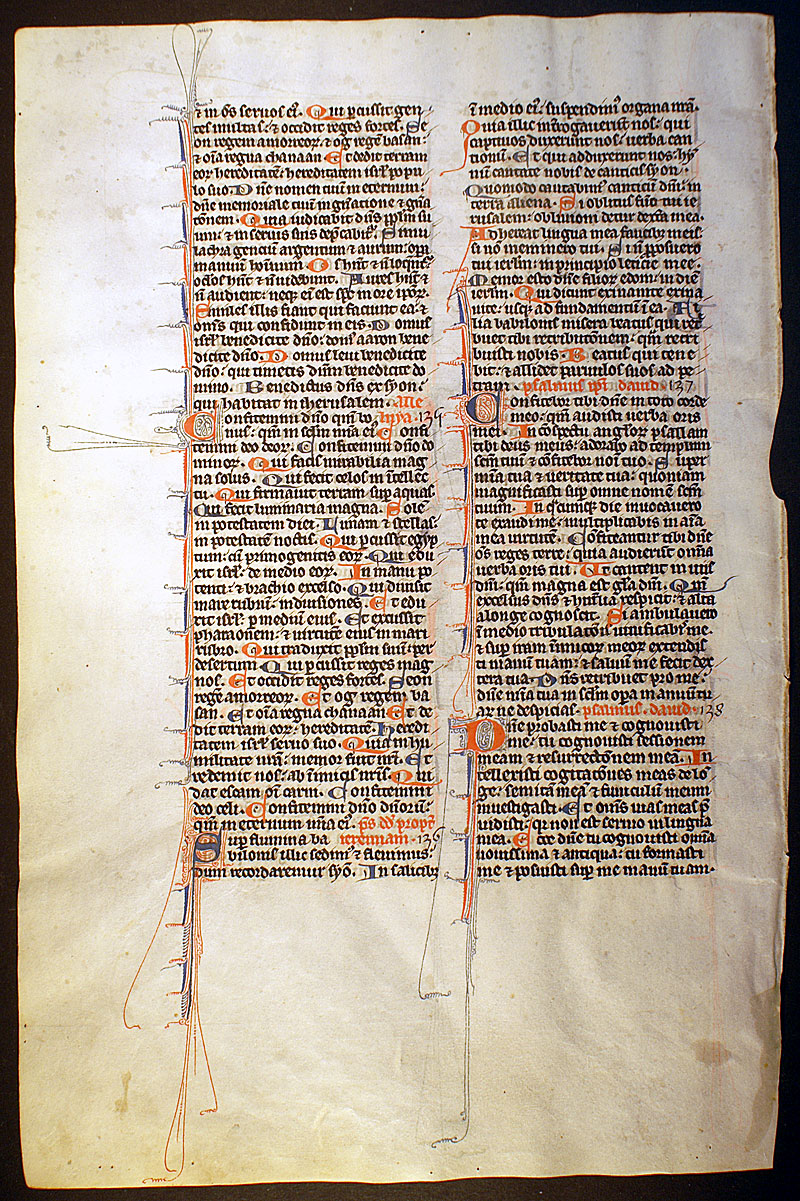 ⁊ in oēs seruos eiꝰ. Qui ꝑcussit gen
tes multas: ⁊ occidit reges fortes. Se
on regem amoreoꝝ: ⁊ og regē basan:
⁊ oīa regna chanaan. Et dedit terram
eoꝝ hereditatē: hereditatem isrł popu
lo suo. Dn̄e nomen tuū in eternum:
dn̄e memoriale tuū in gn̄atione ⁊ gn̄a
tōnem. Quia iudicabit dn̄s ppłm su
um: ⁊ in seruis suis dep̄cabit᷑. Simu
lachra gencium argentum ⁊ aurum: oꝑa
manuum hōinum. Os hn̄t ⁊ n̄ loquēt᷑:
oc̄los hn̄t ⁊ n̄ uidebunt. Aures hn̄t ⁊
n̄ audient: neqꝫ em̄ est sp̄s in ore ip̄oꝝ.
Similes illis fiant qui faciunt ea: ⁊
om̄s qui confidunt in eis. Domus
isrł benedicite dn̄o: domꝰ aaron bene
dicite dn̄o. Domus leui benedicite
dn̄o: qui timetis dn̄m benedicite do
mino. Benedictus dn̄s ex syon:
qui habitat in iherusalem. Alle
Confitemini dn̄o qm̄ bo luya. 135
nus: qm̄ in sełm mīa eiꝰ. Confi
temini deo deoꝝ. Confitemini dn̄o do
minoꝝ. Qui facit mirabilia mag
na solus. Qui fecit celos in intellec
tu. Qui firmauit terram suꝑ aquas.
Qui fecit luminaria magna. Solē
in potestatem diei. Lunam ⁊ stellas:
in potestatē noctis. Qui ꝑcussit egyp
tum: cū primogenitis eoꝝ. Qui edu
xit isrł: de medio eoꝝ. In manu po
tenti: ⁊ brachio excelso. Qui diuisit
mare rubrū: in diuisiones. Et edu
xit isrł: ꝑ medium eius. Et excussit
pharaonem: ⁊ uirtutē eius in mari
rubro. Qui traduxit ppłm suū: per
desertum. Qui ꝑcussit reges mag
nos. Et occidit reges fortes. Seon
regē amorreoꝝ. Et og regem ba
san. Et oīa regna chanaan. Et de
dit terram eoꝝ: hereditatē. Heredi
tatem isrł seruo suo. Quia in hu
militate nr̄a: memor fuit nr̄i. Et
redemit nos: ab inimicis nr̄is. Qui
dat escam: oī carni. Confitemini
deo celi. Confitemini dn̄o dn̄orū:
qm̄ in eternum mīa eiꝰ. p̄s dd̄ propt̄
Sup flumina ba ieremiam. 136
bilonis illic sedimꝰ ⁊ fleuimus:
dum recordaremur syō. In salicibꝫ
in medio eiꝰ: suspendimꝰ organa nr̄a.
Quia illic int̄rogauerūt nos: qui
captiuos duxerunt nos: uerba can
tionū. Et qui adduxerunt nos: hy
mnū cantate nobis de canticis syon.
Quomodo cantabimꝰ canticū dn̄i: in
terra aliena. Si oblitus fuero tui ie
rusalem: obliuioni detur dext̄a mea.
Adhereat lingua mea faucibꝫ meis:
si nō meminero tui. Si n̄ ꝓposuero
tui ierłm: in principio leticie mee.
Memor esto dn̄e filioꝝ edom: in die
ierłm. Qui dicunt exinanite exina
nite: usqꝫ ad fundamentū in ea. Fi
lia babilonis misera: beatus qui ret̄
buet tibi retributōnem: qm̄ retri
buisti nobis. Beatus qui tene
bit: ⁊ allidet paruulos suos ad pe
tram. psalmus ip̄i dauid. 137
Confitebor tibi dn̄e in toto corde
meo: qm̄ audisti uerba oris
mei. In cōspectu angłoꝝ psallam
tibi deus meus: adorabo ad templum
sc̄m tuū ⁊ cōfitebor noī tuo. Super
mīa tua ⁊ ueritate tua: quoniam
magnificasti suꝑ omne nomen sc̄m
tuum. In q̄cumqꝫ die inuocauero
te exaudi me: multiplicabis in aīa
mea uirtutē. Confiteantur tibi dn̄e
oēs reges terre: quia audierūt omīa
uerba oris tui. Et cantent in uiis
dn̄i: qm̄ magna est głia dn̄i. Qm̄
excelsus dn̄s ⁊ humilia respicit: ⁊ alta
a longe cognoscit. Si ambulauero
in medio tribulatōis uiuificabis me:
⁊ suꝑ iram inimicoꝝ meoꝝ extendisti
manū tuam: ⁊ saluū me fecit dex
tera tua. Dn̄s retribuet pro me:
dn̄e mīa tua in sełm: opa manuū tu
arū ne despicias. psalmus dauid. 138
Dn̄e probasti me ⁊ cognouisti
me: tu cognouisti sessionem
meam ⁊ resurrectōnem meā. In
tellexisti cogitatōnes meas de lō
ge: semitā meā ⁊ funiculū meum
inuestigasti. Et om̄s uias meas p̄
uidisti: qꝛ non est sermo in lingua
mea. Ecce dn̄e tu cognouisti omīa
nouissima ⁊ antiqua: tu formasti
me ⁊ posuisti suꝑ me manū tuam.